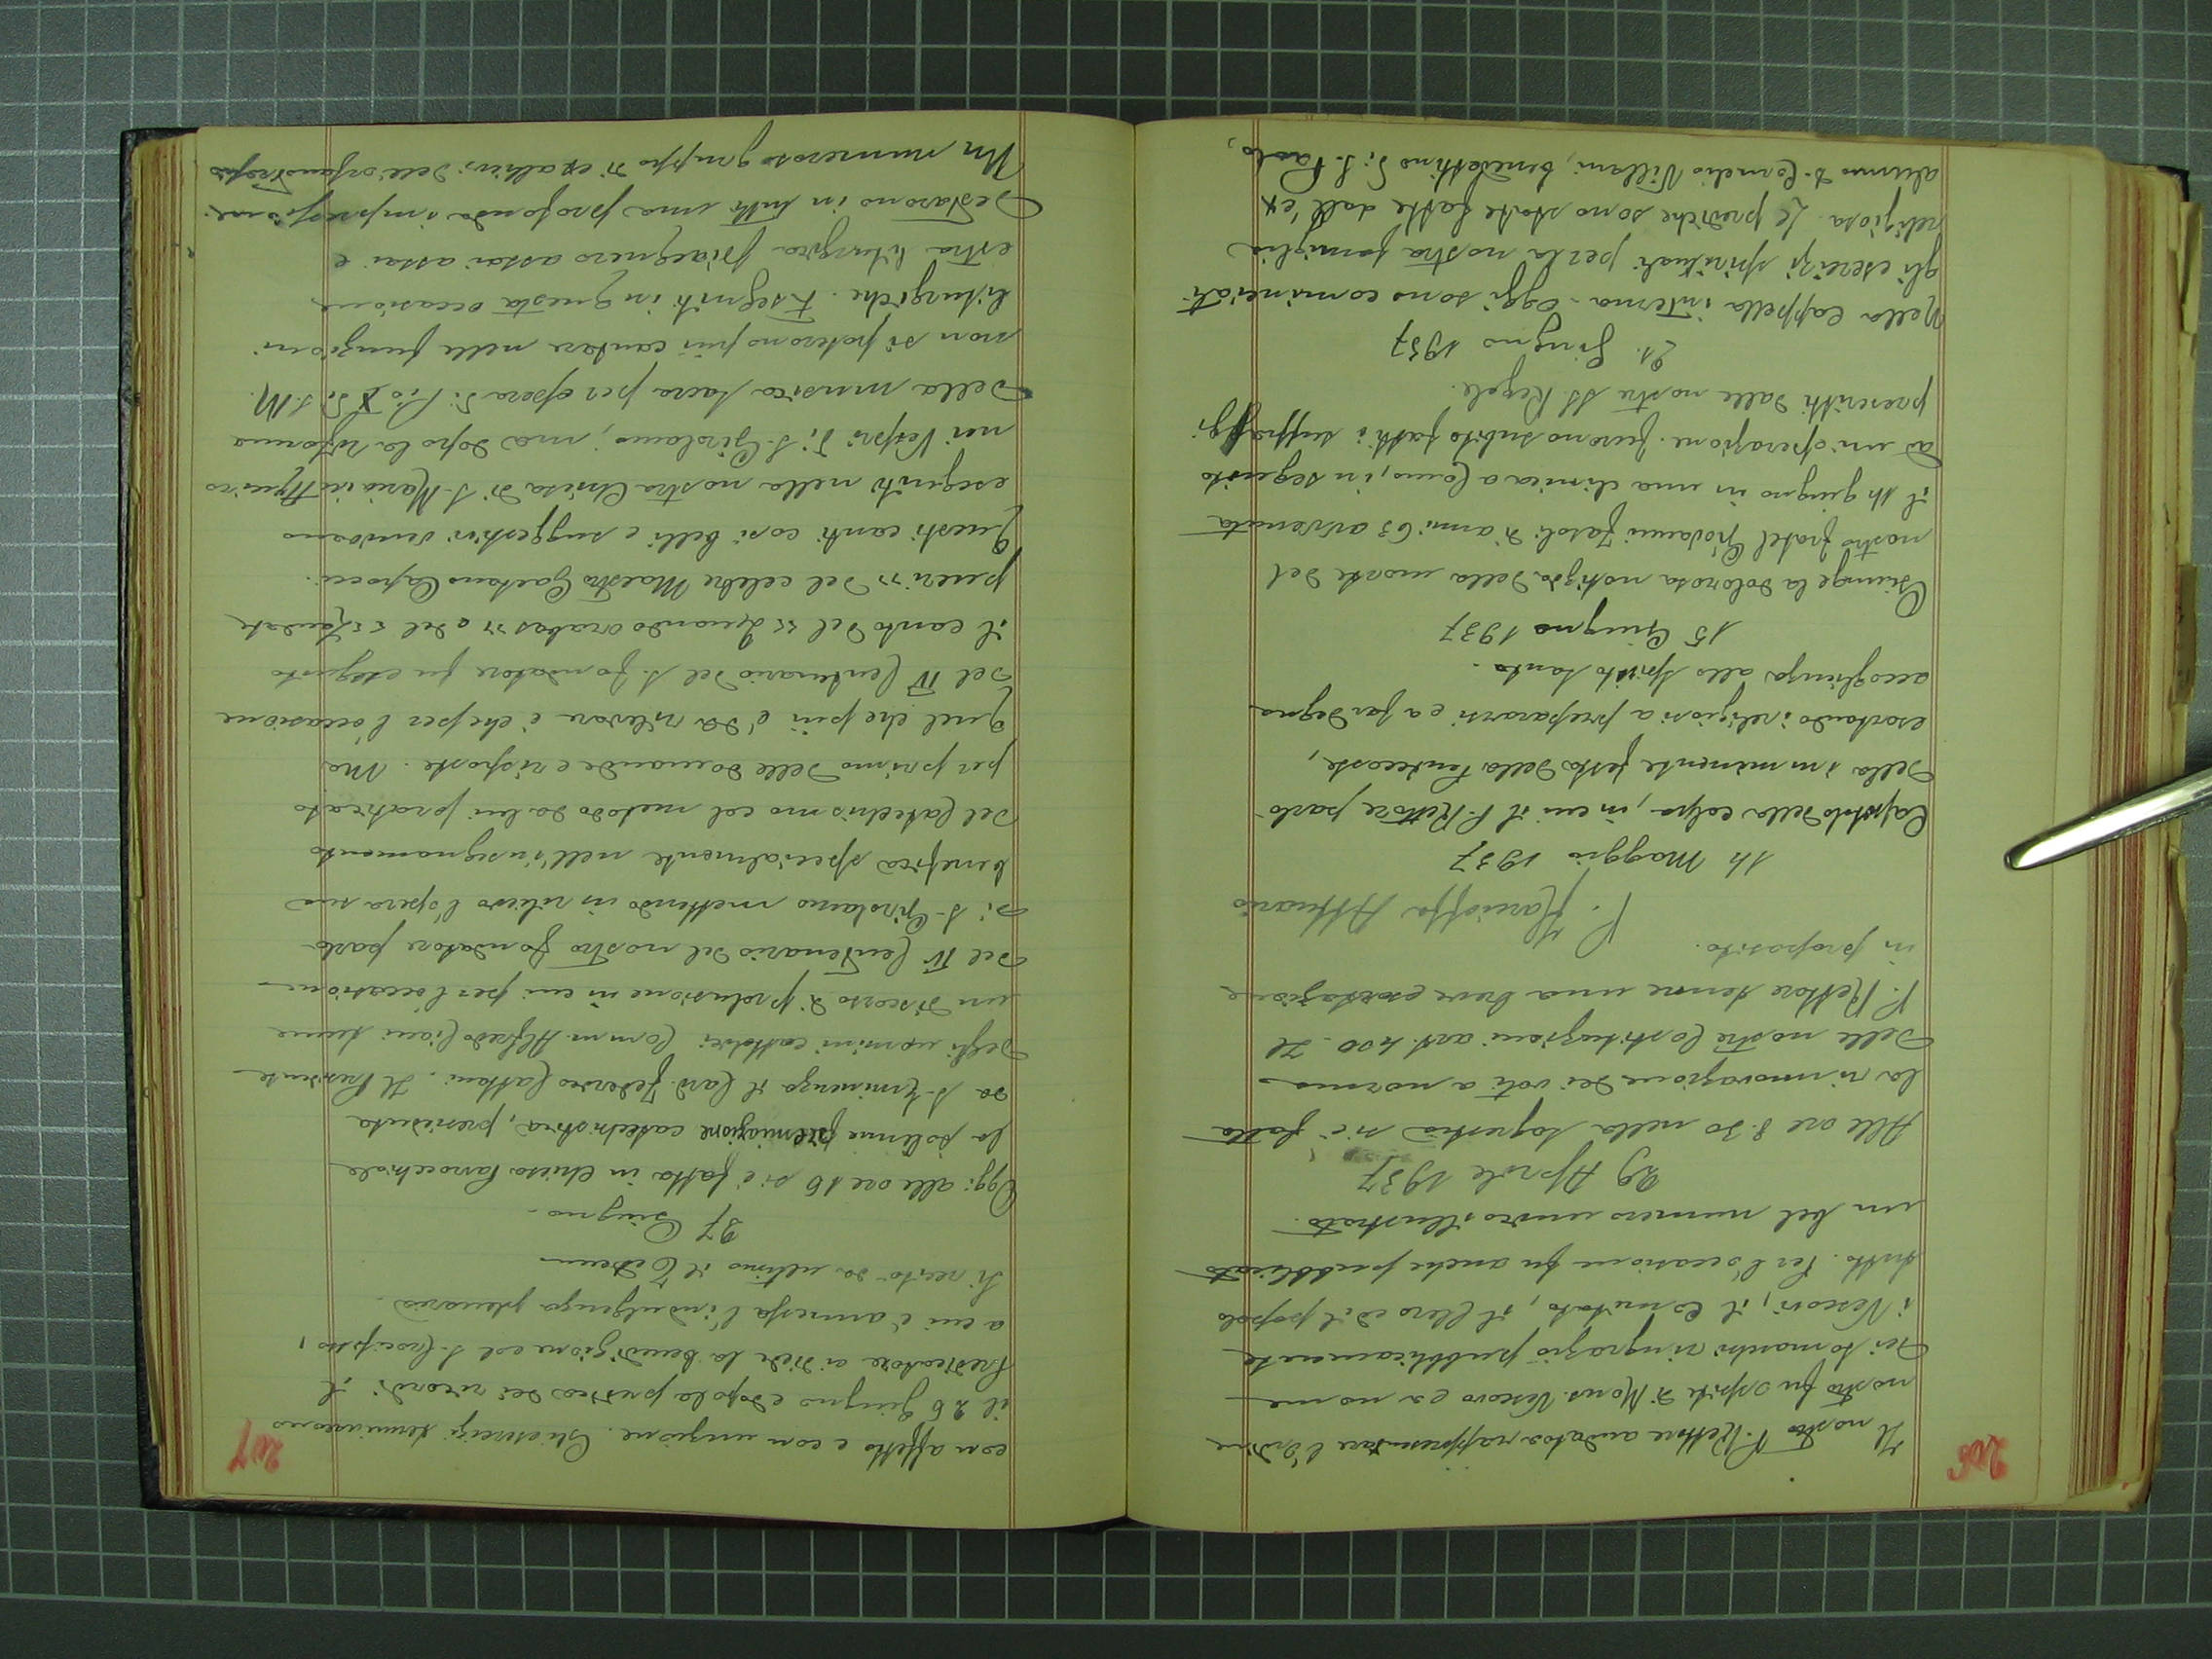 206
Il nostro P. Rettore andato a rappresentare l'Ordine
nostro fu ospite di Mons. Vescovo e a nome
dei Somaschi ringraziò pubblicamente
i Vescovi, il Comitato, il Clero ed il popolo
tutto. Per l'occasione fu anche pubblicato
un bel numero unico illustrato.
29 Aprile 1937
Alle ore 8.30 nella sagrestia si è fatta
la rinnovazione dei voti a norma
delle nostre Costituzioni art. 400. Il
P. Rettore tenne una breve esortazione
in proposito.
P. Attuario
14 Maggio 1937
Capitolo della colpa, in cui il P. Rettore parlò
della imminente festa della Pentecoste,
esortando i religiosi a prepararsi e a far degna
accoglienza allo Spirito Santo.
15 Giugno 1937
Giunge la dolorosa notizia della morte del
nostro fratel Giovanni Fasoli di anni 63 avvenuta
il 14 giugno in una clinica a Como, in seguito
ad un'operazione. Furono subito fatti i suffraggi
prescritti dalle nostre SS. Regole.
21. Giugno 1937
Nella Cappella interna - Oggi sono cominciati
gli esercizi spirituali per la nostra famiglia
religiosa. Le prediche sono state fatte dall'ex
alunno D. Cornelio Villani, benedettino di S. Paolo,
207
con affetto e con unzione. Gli esercizi terminarono
il 26 Giugno e dopo la predica dei ricordi il
Predicatore ci diede la benedizione col S. Crocifisso,
a cui è annessa l'indulgenza plenaria.
Si recitò da ultimo il Te Deum
27 Giugno -
Oggi alle ore 16 si è fatta in Chiesa Parrocchiale
la solenne premiazione catechistica, presieduta
da S. Eminenza il Card. Federico Cattani. Il Presidente
degli uomini cattolici Comm. Alfredo Ciani tenne
un discorso di prolusione in cui per l'occasione
del IV Centenario del nostro Fondatore parlò
di S. Girolamo mettendo in rilievo l'opera sua
benefica specialmente nell'insegnamento
del Catechismo col metodo da lui praticato
per primo delle domande e risposte. Ma
quel che più è da rilevare è che per l'occasione
del IV Centenario del S. Fondatore fu eseguito
il canto del "Quando orabas" e del "Laudate
pueri" del celebre Maestro Gaetano Capocci.
Questi canti così belli e suggestivi venivano
eseguiti nella nostra Chiesa di S. Maria in Aquiro
nei Vespri di S. Girolamo, ma dopo la riforma
della musica sacra per opera di Pio X di S. M.
non si poterono più cantare nelle funzioni
liturgiche. Eseguiti in questa occasione
extra liturgica piacquero assai assai e
destarono in tutti una profonda impressione.
Un numeroso gruppo di ex allievi dell'orfanotrofio